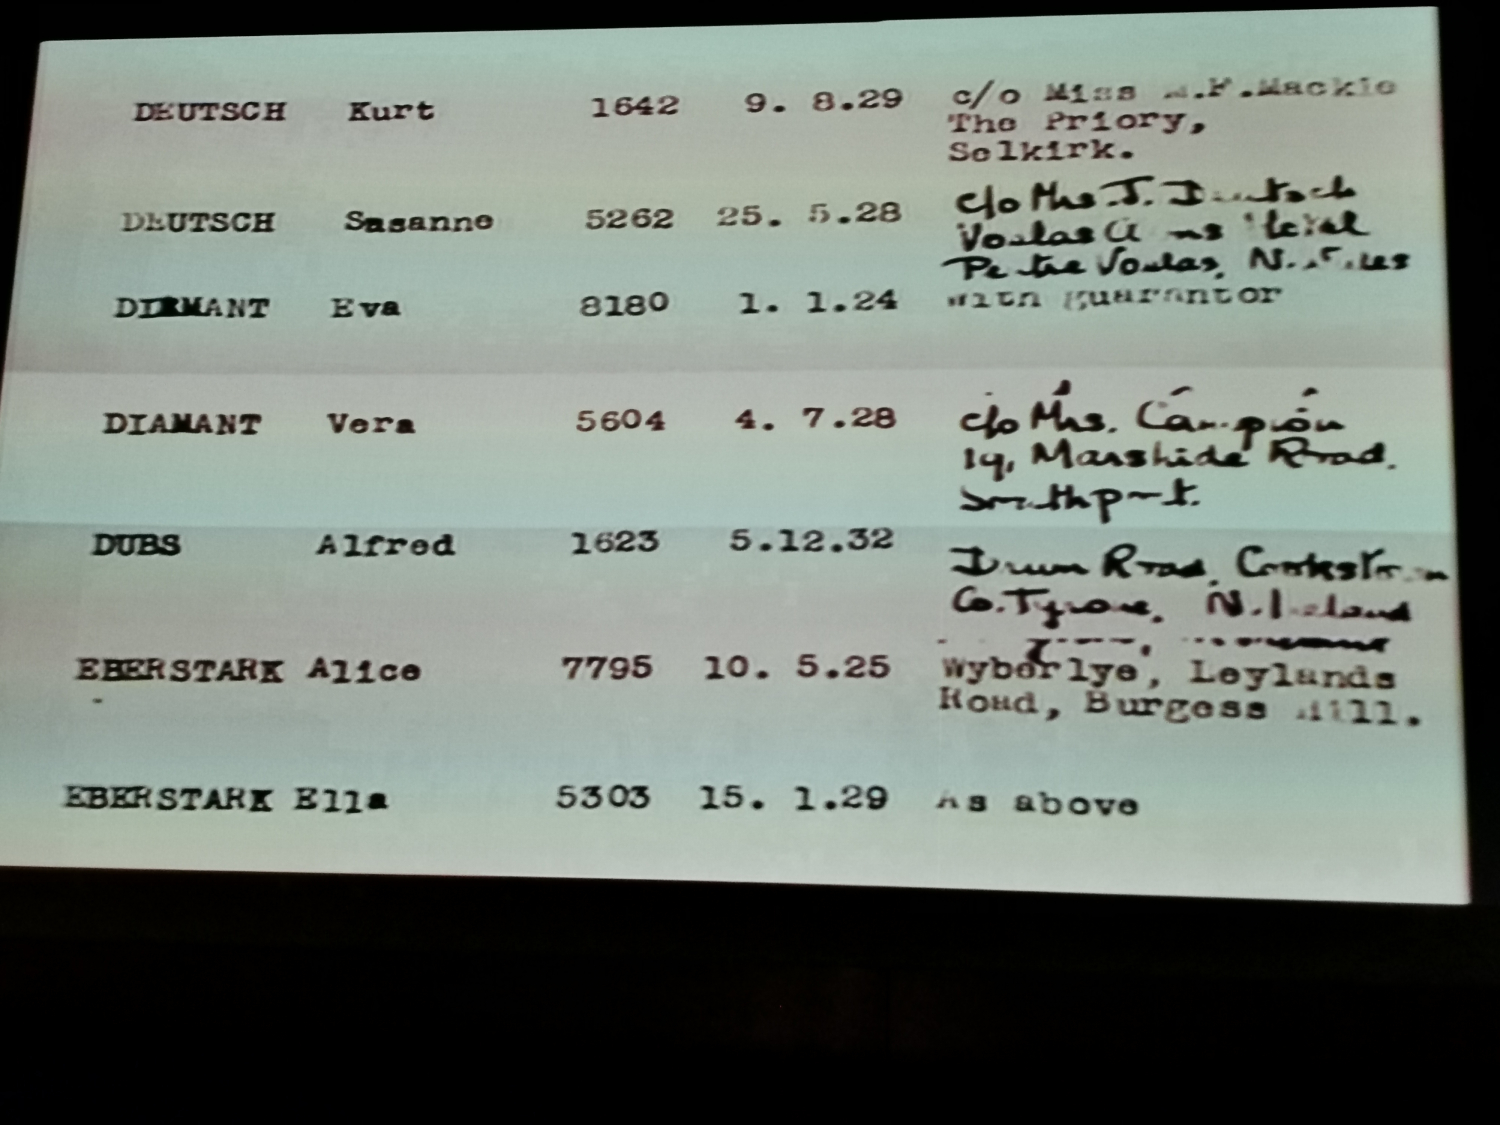 DEUTSCH Kurt 1642 9. 8.29 c/o Miss .F.Mackie
The Priory,
Selkirk.
DEUTSCH Susanne 5262 25. 5.28 c/o Mrs. J. Deutsch
Voelas
Pentre Voelas, N. Wales
DIAMANT Eva 8180 1. 1.24 with guarantor
DIAMANT Vera 5604 4. 7.28 c/o Mrs. Campion
19, Marshide Road.
Southport.
DUBS Alfred 1623 5.12.32 Drum Road, Cookstown
Co. Tyrone, N. Ireland
EBERSTARK Alice 7795 10. 5.25 Wyberlye, Leylands
Road, Burgess Hill.
EBERSTARK Ella 5303 15. 1.29 As above